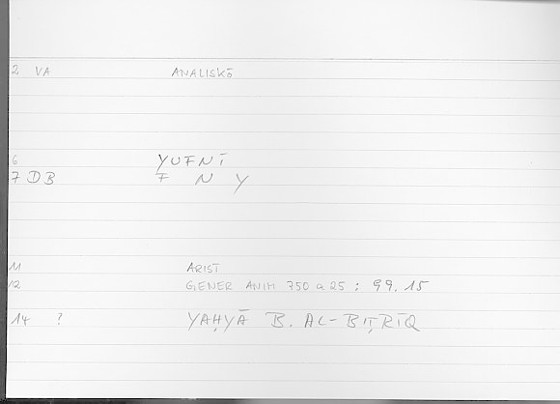 2 VA ANALISKŌ
6 YUFNĪ
7 DB F N Y
11 ARIST
12 GENER ANIM 750 a 25 ; 99.15
14 ? YAḤYĀ B. AL-BIṬRĪQ